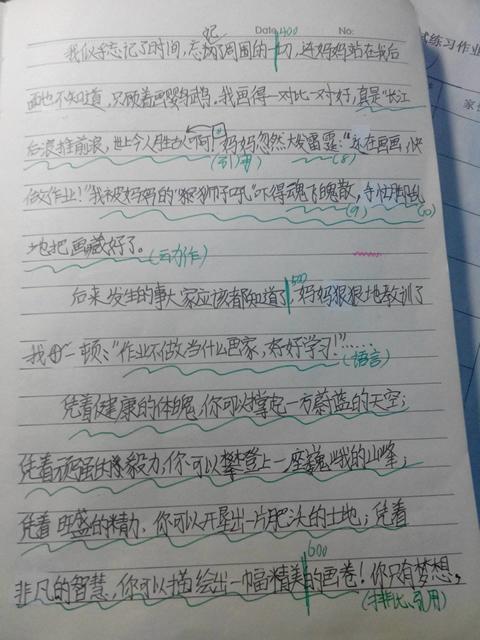 记 Date 400 No:
我似乎忘记了时间,忘记了周围的一切,连妈妈站在我后
面也不知道,只顾着画鹦鹉,我画得一对比一对好,真是“长江
后浪推前浪,世上今人胜古人啊!”妈妈忽然大发雷霆:“还在画画,快
(引用) (8)
做作业!”我被妈妈的“狮吼”吓得魂飞魄散,手忙脚乱
(9) (10)
地把画藏好了。(动作)
后来发生的事大家应该都知道了,妈妈狠狠地教训了
500
我一顿:“作业不做,当什么画家,好好学习!”……
(语言)
凭着健康的体魄,你可以撑起一方蔚蓝的天空;
凭着顽强的毅力,你可以攀登上一座巍峨的山峰;
凭着旺盛的精力,你可以开垦出一片肥沃的土地;凭着
600
非凡的智慧,你可以描绘出一幅精美的画卷!你只有梦想,
(排比、引用)
试练习作业